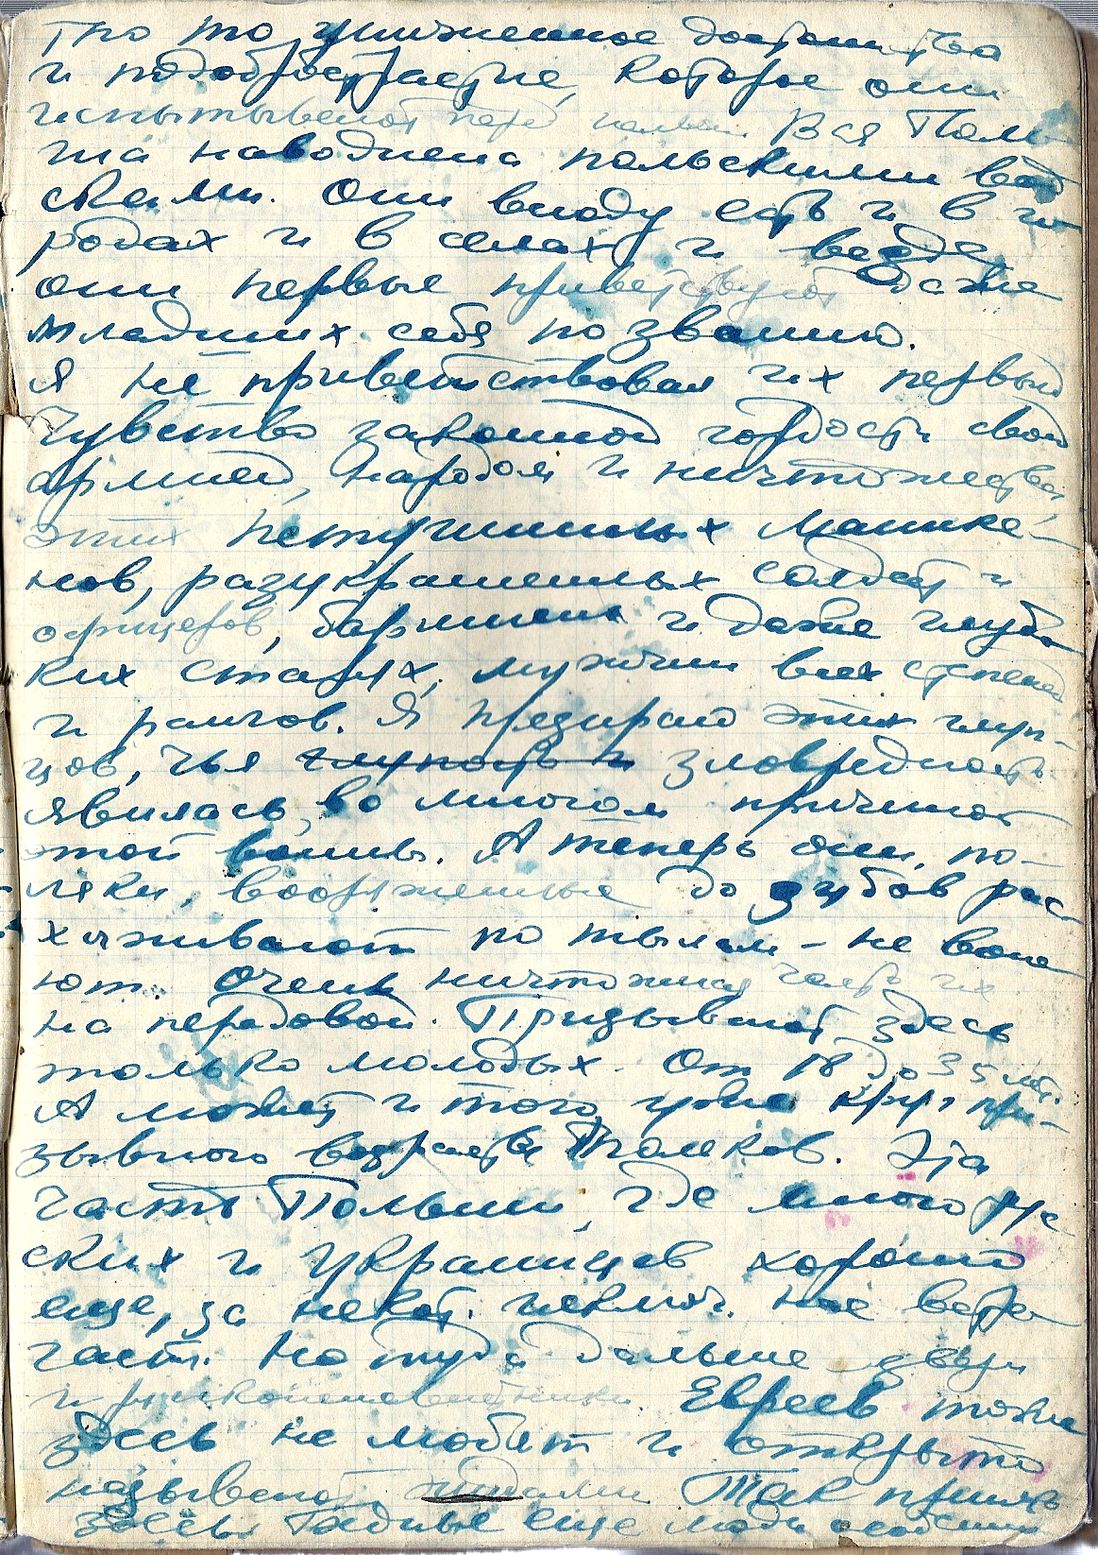 то униженное достоинство
и подобострастие, которое они
испытывают перед нами. Вся Поль
ша наводнена польскими вой
сками. Они всюду есть и в го
родах и в селах и везде
они первые приветствуют даже
младших себя по званию.
Я не приветствовал их первый
Чувство законной гордости своей
армией, народом и ничтожества
этих петушиных манике-
нов, разукрашенных солдат и
офицеров, барышень и даже глубо
ких старух, мужчин всех степеней
и рангов. Я презираю этих глуп-
цов, чья глупость и зловредность
явилась во многом причиной
этой войны. А теперь они, по-
ляки, вооруженные до зубов рас
хаживают по тылам – не вою
ют. Очень ничтожная часть их
на передовой. Призывают здесь
только молодых. От 18 до 35 лет.
А может и того уже круг при-
зывного возраста поляков. Эта
часть Польши, где много рус
ских и украинцев хорошо
еще, за некот. исключ. нас встре
чает. Но туда дальше звери
и
Евреев тоже
здесь не любят и открыто
называют жидами Так принято
здесь. Гадкие еще люди